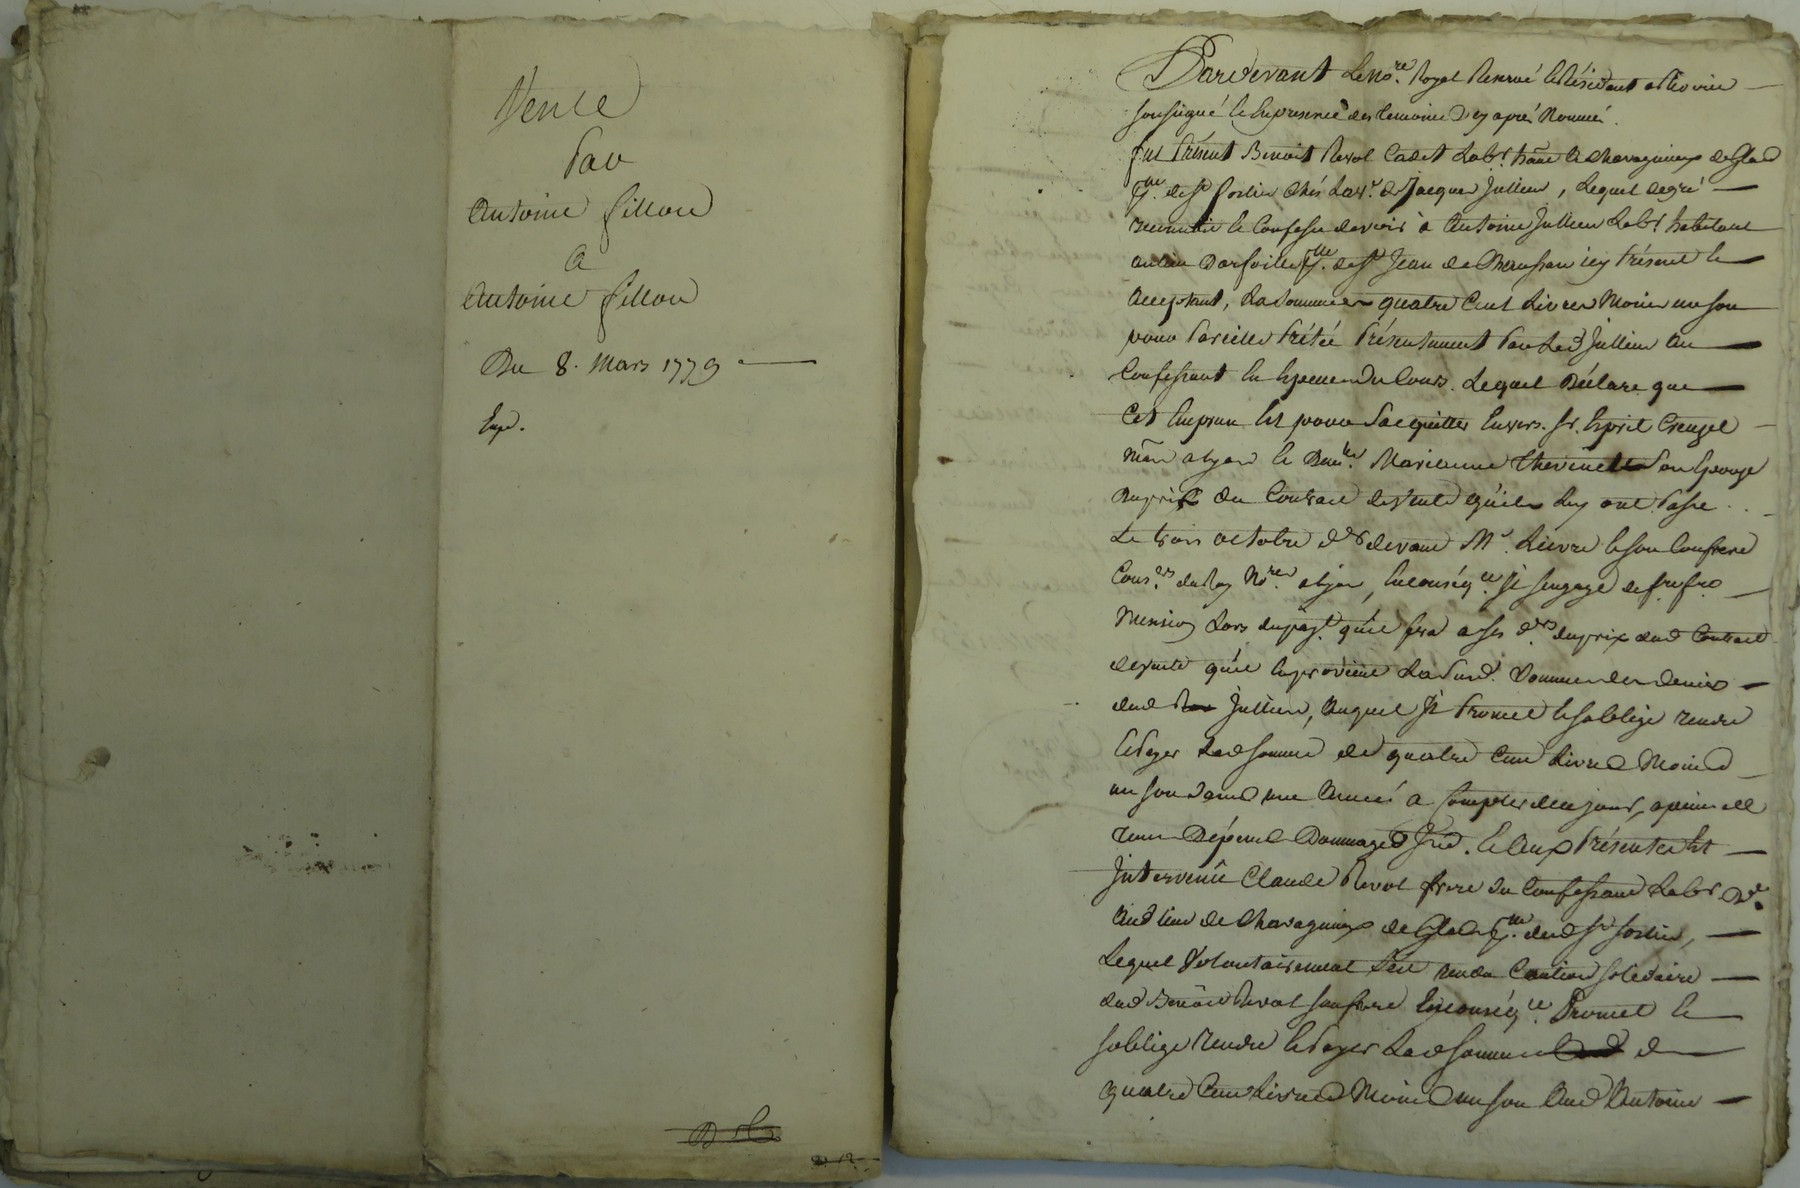 Vente
Par
Antoine fillon
A
Antoine fillon
Du 8. Mars 1779
Exp.
Pardevant Le No.re Royal Reservé & Résidant a
soussigné & En presence des temoins cy aprés Nommés.
fut Présent Benoit Revol Cadet Lab.r
de St. Jacques Jullien, Lequel de gré
reconnu & Confesse devoir à Antoine Jullien Lab.r habitant
au lieu St. Jean de icy Présent &
Acceptant, La Somme de quatre Cent Livres Moins un sou
pour Pareille Prétée Présentement Par Led. Jullien Au
Confessant En Especes du Cours. Lequel Déclare que
Cet Emprun Est pour S'acquitter Envers. Sr. Esprit
a Lyon & Marianne Thevenet Son Epouse
du prix du Contract de Vente qu'ils Luy ont Passé
Le trois octobre d.er devant M.e & son Confrere
Cons.ers du Roy No.res a Lyon, En conséq.ce Il s'engage de faire
Mention Lors du pay.t qu'il fera a Ses d.rs du prix dud. Contract
de vente qu'il En provient Lasusd. Somme des deniers
dud. Jullien, Auquel Il Promet & s'oblige rendre
& Payer Lad. somme de quatre Cent Livres Moins
un sou dans une Année a Compter de ce jour, a peine de
tous Dépens Dommages & Aux Présentes Est
Intervenu Claude Revol frere du Confessant Lab.r
Aud. lieu de dud. St.
Lequel Volontairement S'est rendu Caution solidaire
dud. Benoit Revol son frere En conséq.ce Promet &
s'oblige rendre & Payer Lad. somme de
quatre Cent Livres Moins un sou Aud. Antoine